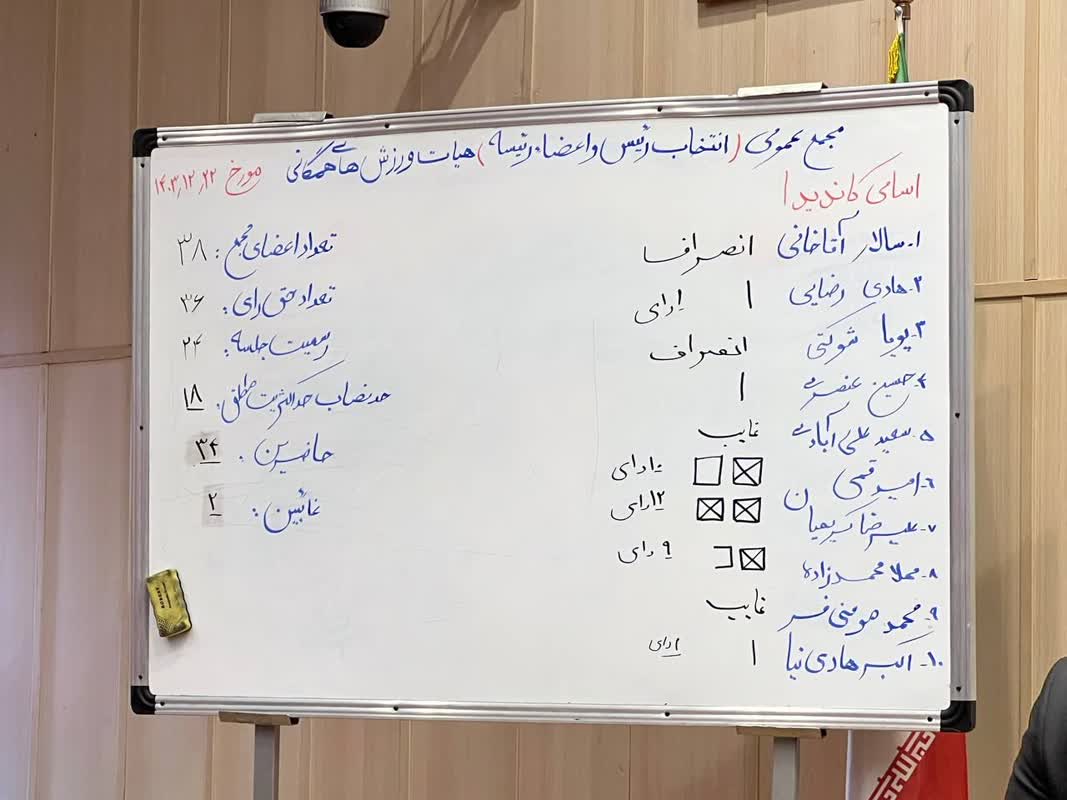 مجمع عمومی (انتخاب رئیس و اعضاء رئیسه) هیات ورزش های همگانی
مورخ ۱۴۰۳,۱۲,۲۲
اسامی کاندیدا
۱- سالار آقاخانی انصراف
۲- هادی رضایی ۱ ۱ رای
۳- پویا شوکتی انصراف
۴- حسین عنصری ۱
۵- سعید علی آبادی غایب
۶- امیر قمی ۱۰ رای
۷- علیرضا کریمیان ۱۲ رای
۸- محمدزاده ۹ رای
۹- محمد مومنی فر غایب
۱۰- اکبر هادی نیا ۱ ۱ رای
تعداد اعضای مجمع: ۳۸
تعداد حق رای: ۳۶
رسمیت جلسه: ۲۴
حد نصاب حداکثریت مطلق: ۱۸
حاضرین: ۳۴
غائبین: ۲